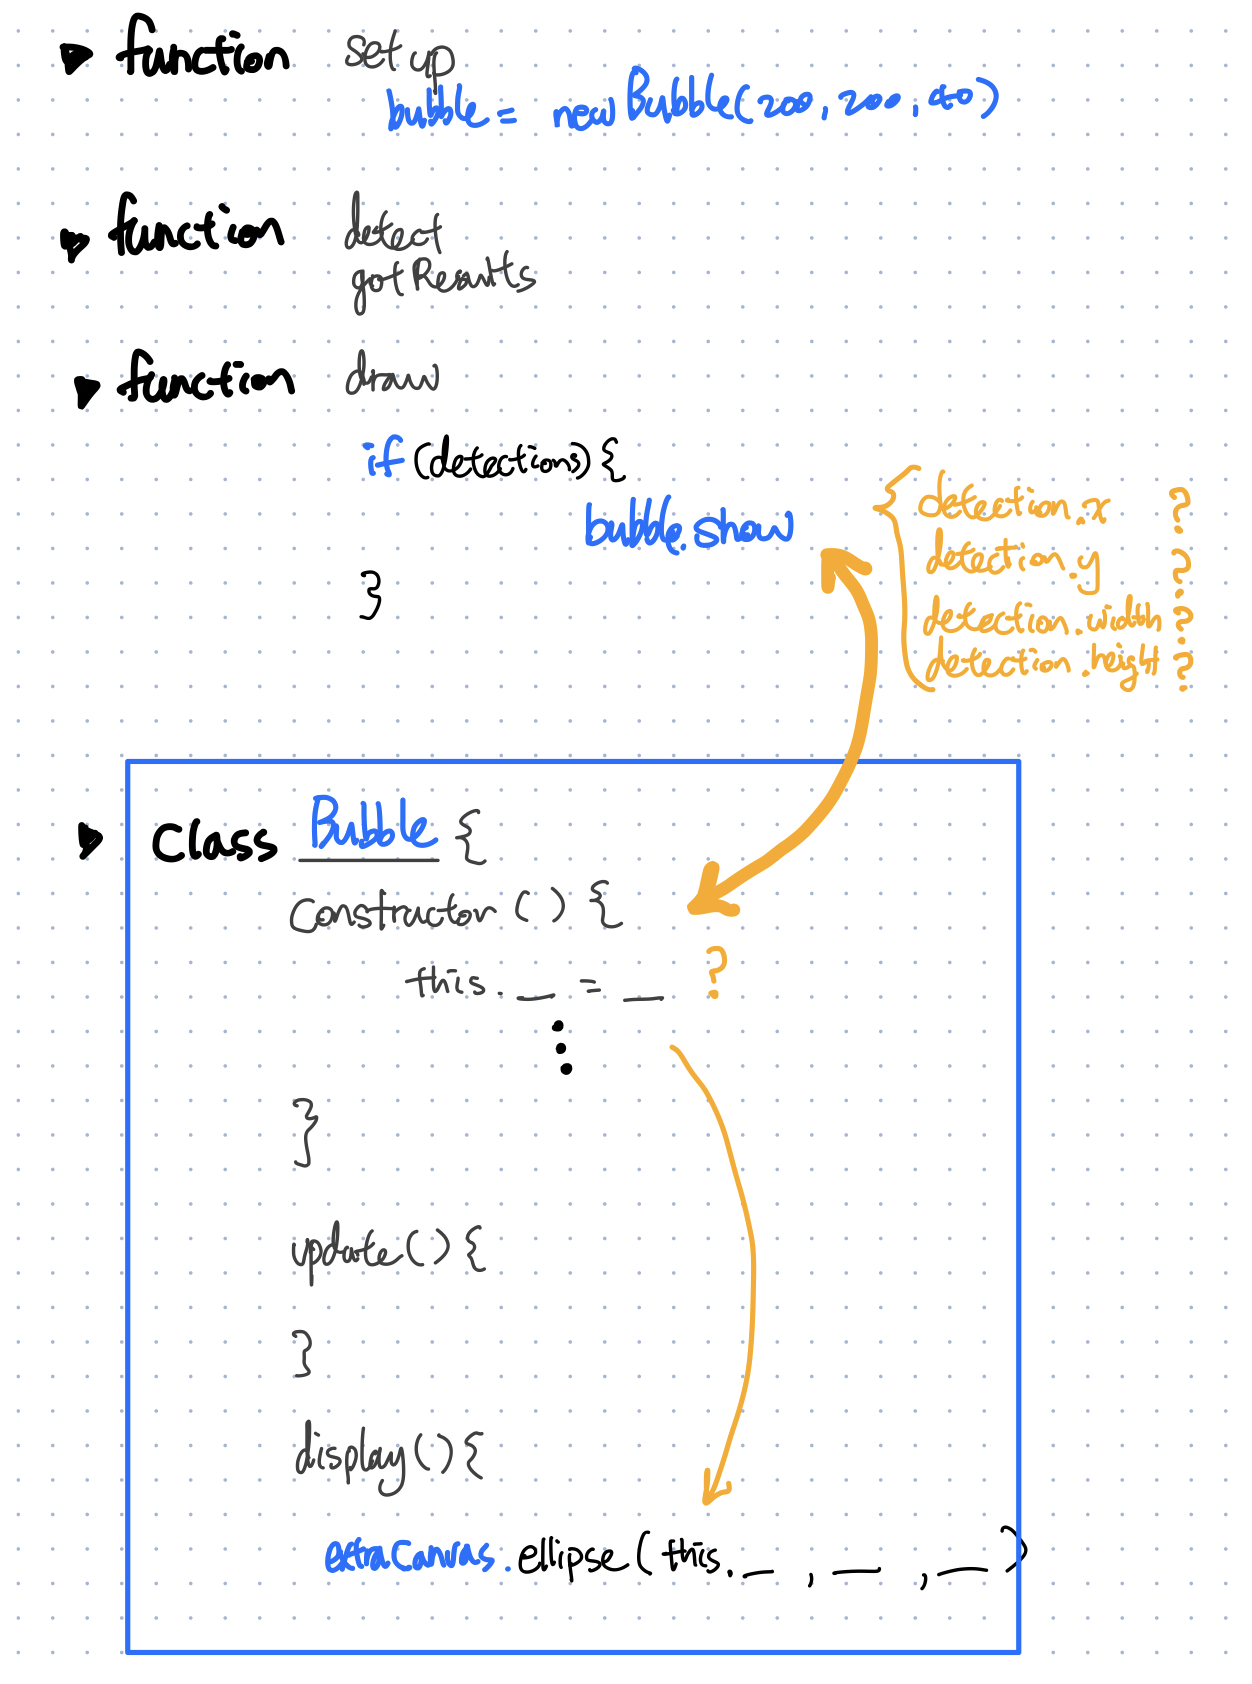 function setup
bubble = new Bubble(200, 200, 40)
function detect
gotResults
function draw
if (detections) {
bubble.show
}
{ detection.x ?
detection.y ?
detection.width ?
detection.height ?
Class Bubble {
Constructor ( ) {
this. _ = _ ?
}
update ( ) {
}
display ( ) {
extraCanvas.ellipse (this. _ , _ , _ )